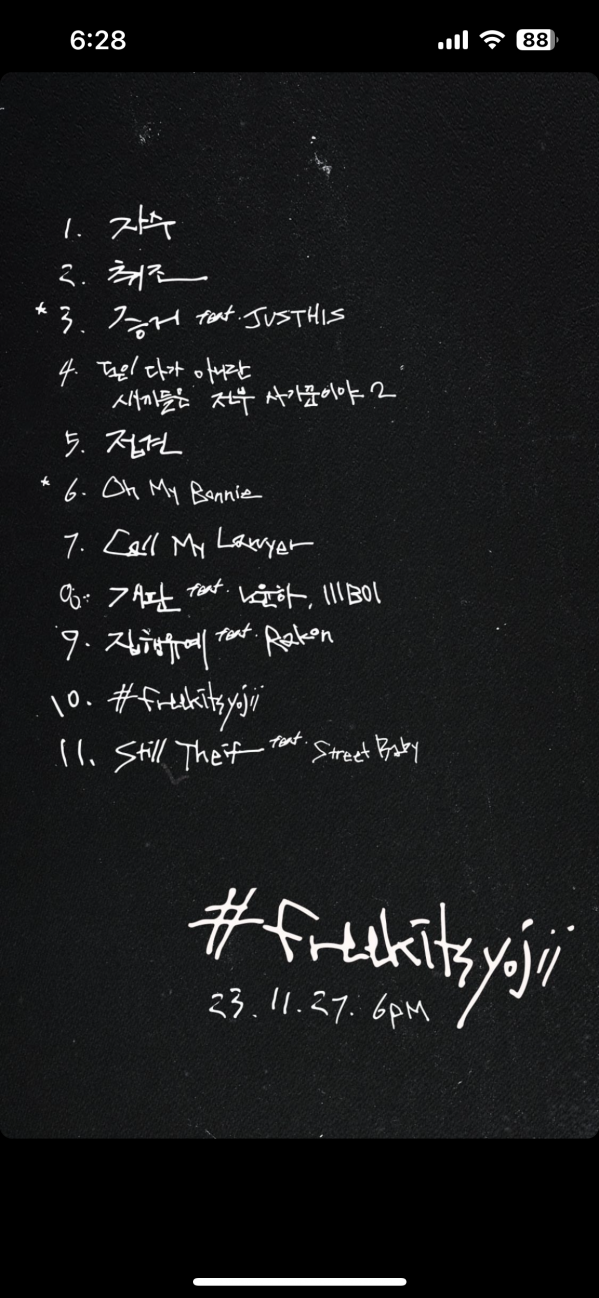 6:28
88
1. 자수
2. 취조
* 3. 증거 feat. JUSTHIS
4. 돈이 다가 아니란
새끼들은 전부 사기꾼이야 2
5. 접견
* 6. Oh My Bonnie
7. Call My Lawyer
8. 재판 feat. 노윤하, lIlBOI
9. 집행유예 feat. Rakon
10. #freekitsyojii
11. Still Theif feat. Street Baby
#freekitsyojii
23.11.27. 6PM